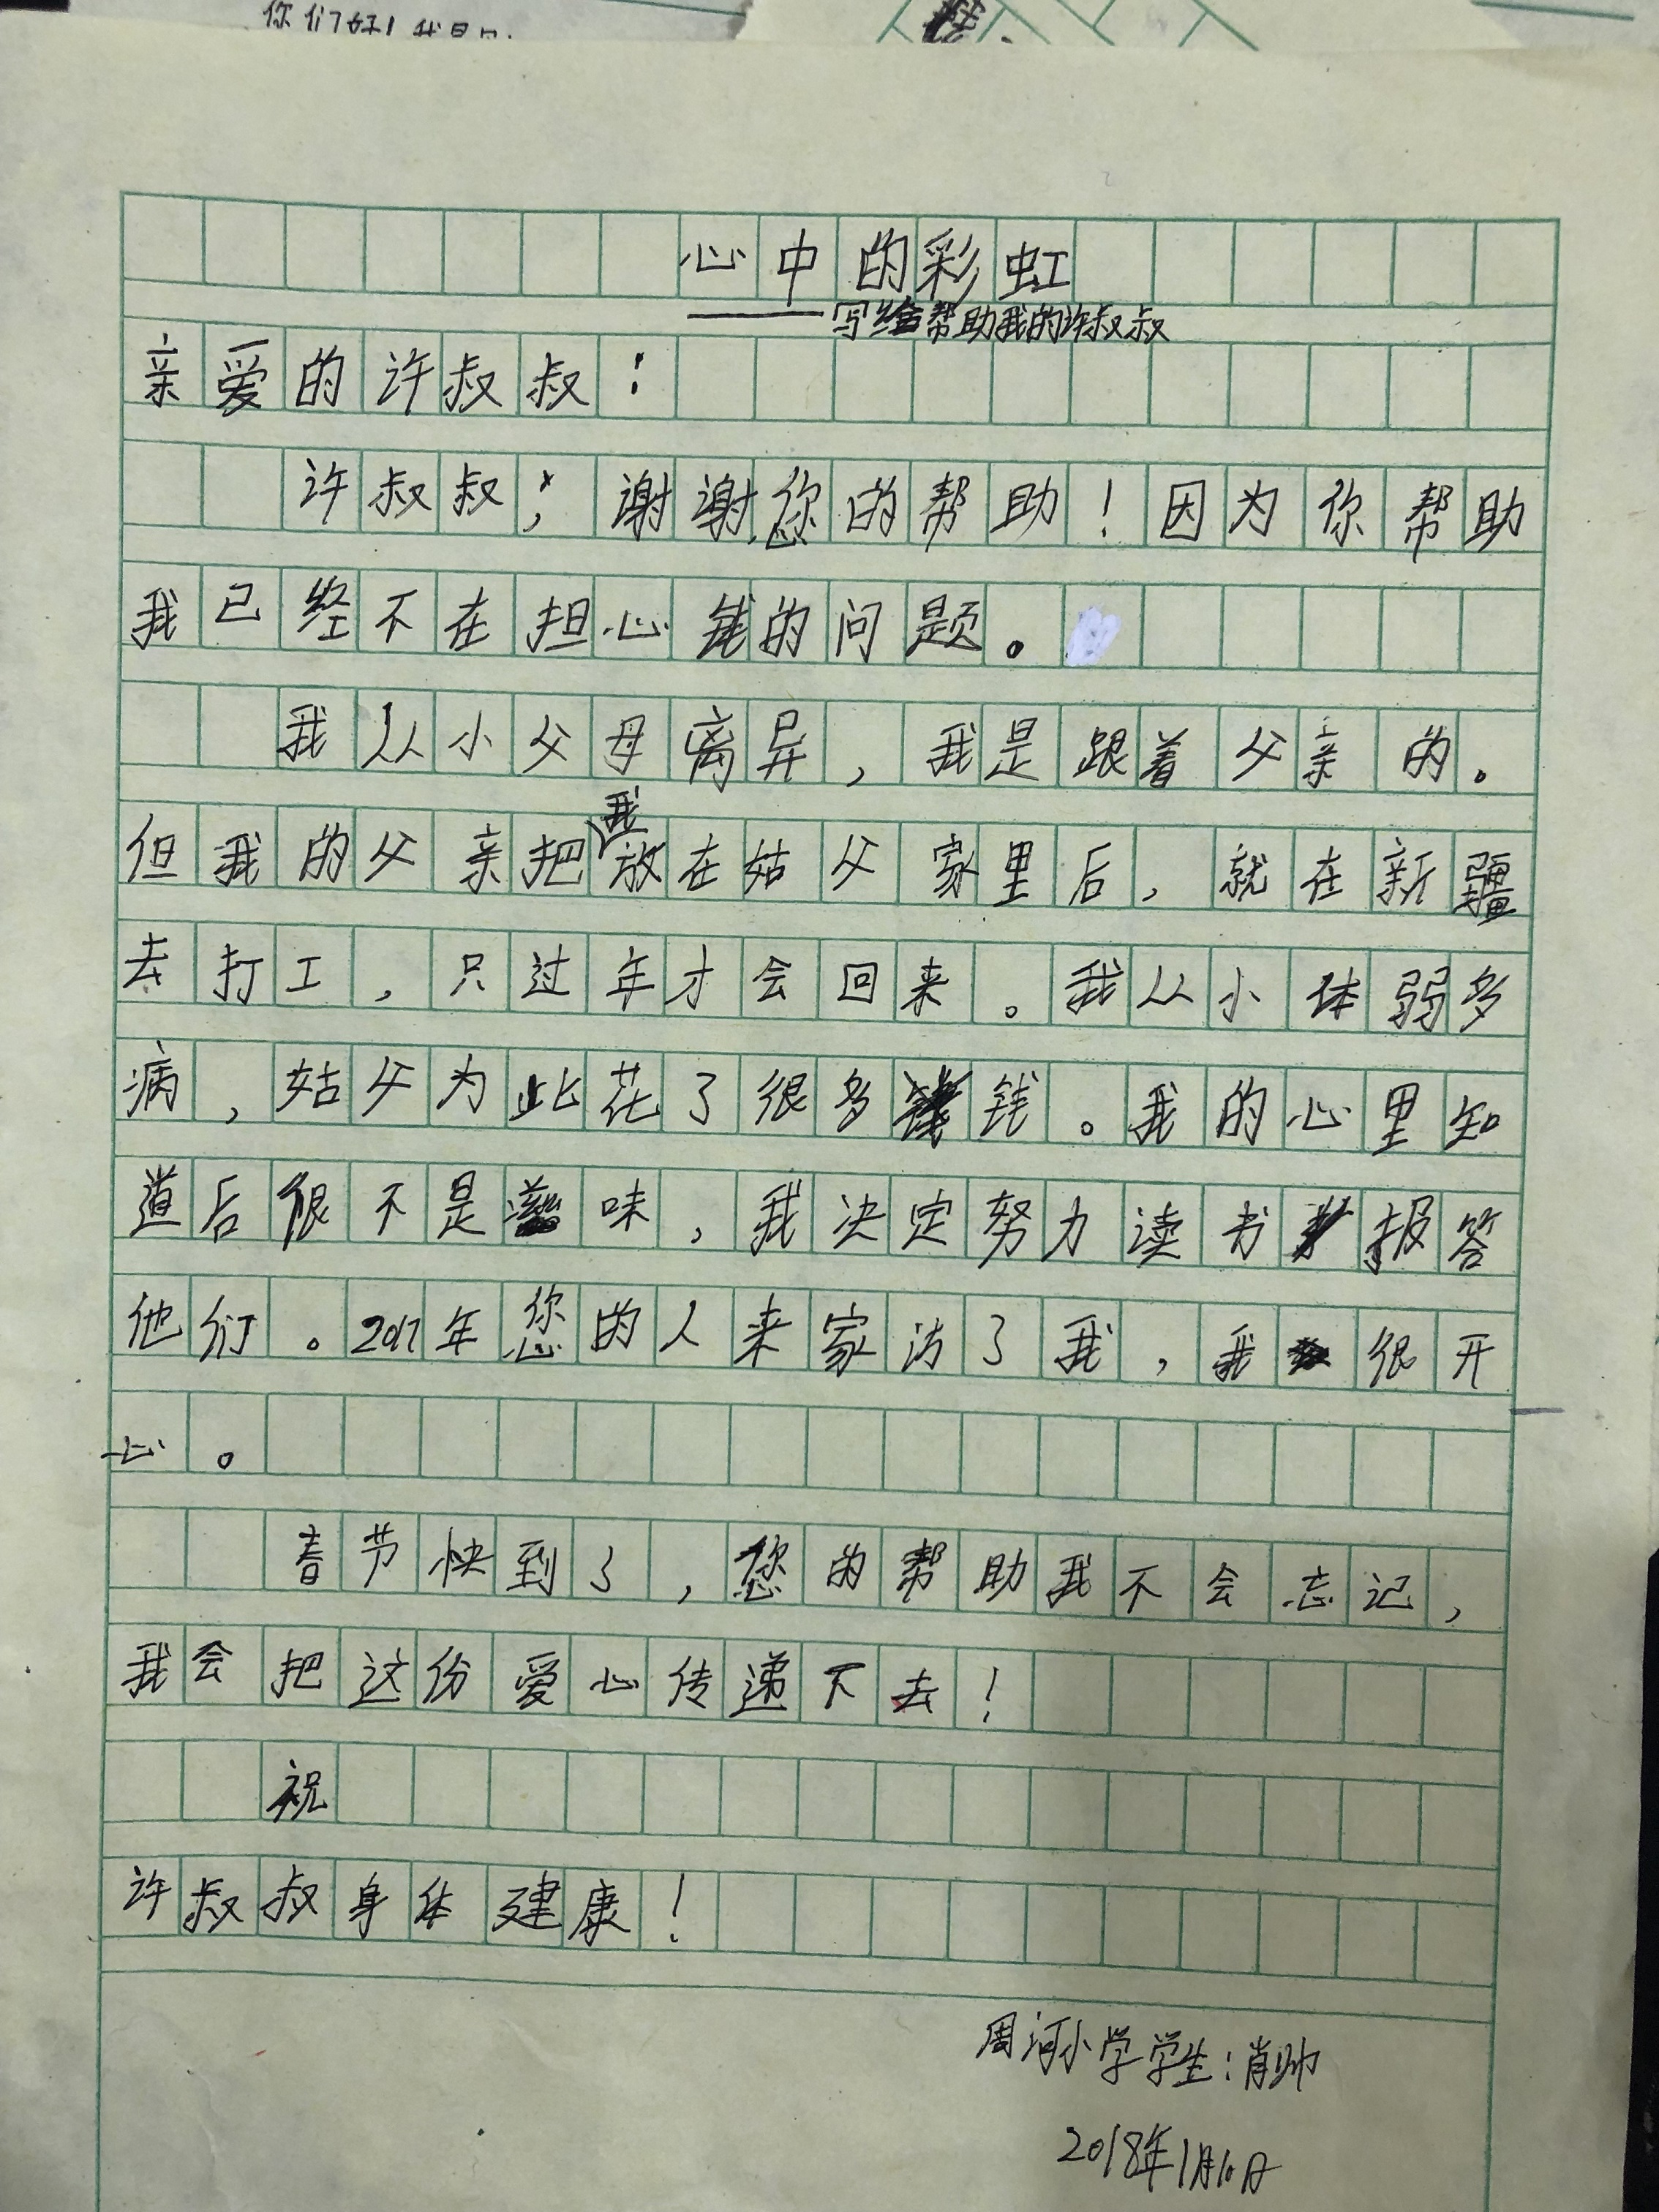 你们好!我是
心中的彩虹
——写给帮助我的许叔叔
亲爱的许叔叔：
许叔叔；谢谢您的帮助！因为你帮助
我已经不在担心钱的问题。
我从小父母离异，我是跟着父亲的。
但我的父亲把我放在姑父家里后，就在新疆
去打工，只过年才会回来。我从小体弱多
病，姑父为此花了很多钱。我的心里知
道后很不是滋味，我决定努力读书报答
他们。2017年您的人来家访了我，我很开
心。
春节快到了，您的帮助我不会忘记，
我会把这份爱心传递下去！
祝
许叔叔身体建康！
周河小学学生：肖帅
2018年1月10日